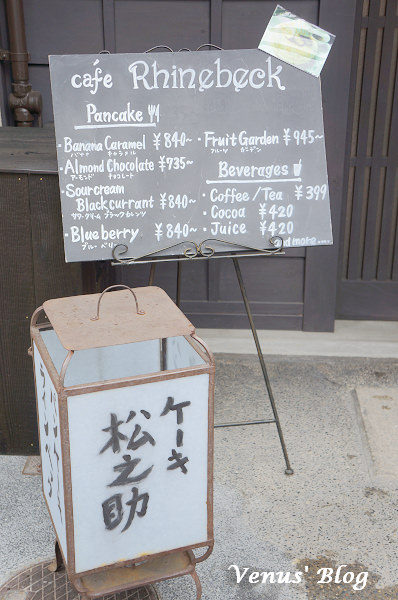 cafe Rhinebeck
Pancake
・Banana Caramel ¥840~
バナナ キャラメル
・Almond Chocolate ¥735~
アーモンド チョコレート
・Sourcream
Blackcurrant ¥840~
サワークリーム ブラックカレンツ
・Blueberry ¥840~
ブルーベリー
・Fruit Garden ¥945~
フルーツ ガーデン
Beverages
・Coffee/Tea ¥399
・Cocoa ¥420
・Juice ¥420
and more
ケーキ
松之助
Venus' Blog